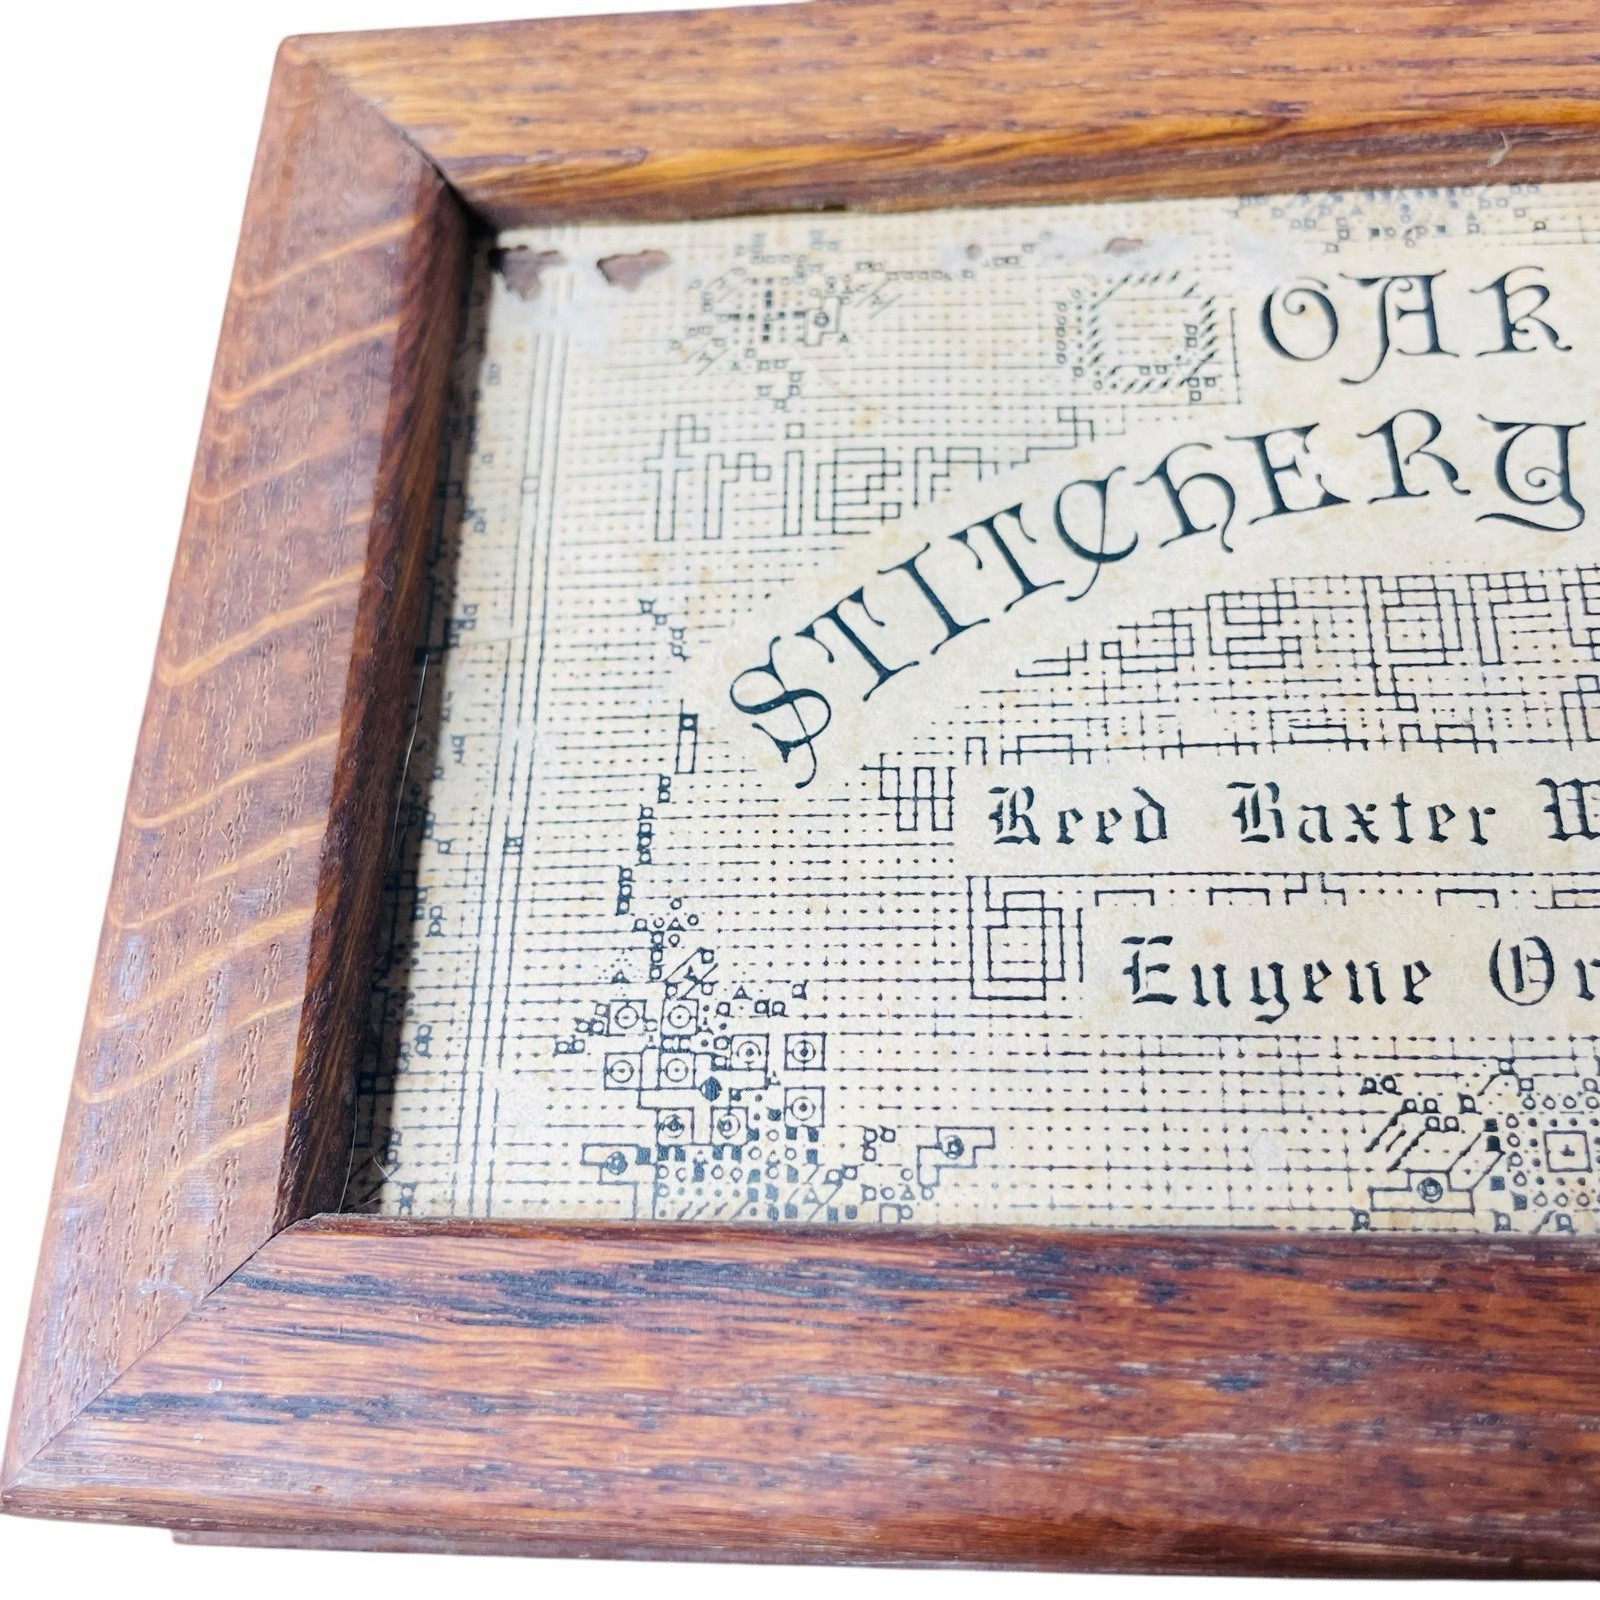 OAK
STITCHERY
frien
Reed Baxter W
Eugene Or